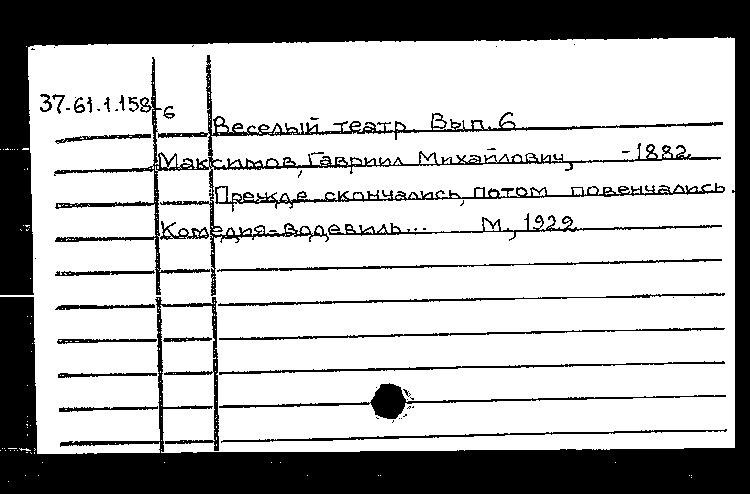 37-61.1.158-6
Веселый театр Вып. 6
Максимов, Гавриил Михайлович, -1882
Прежде скончались, потом повенчались.
Комедия-водевиль... М., 1929